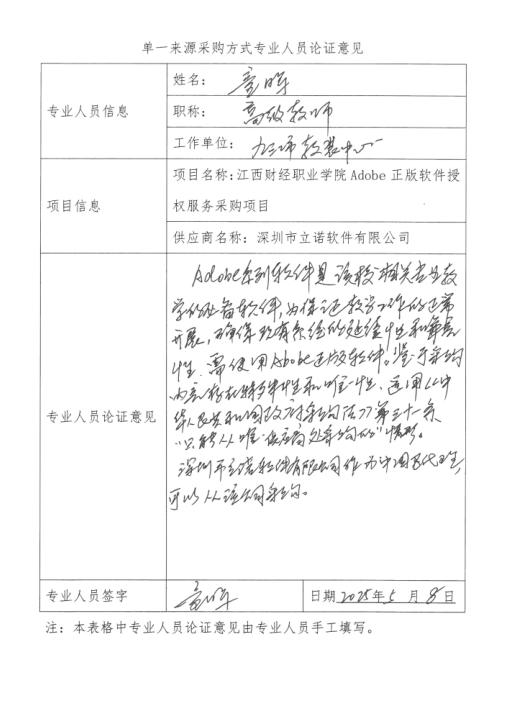 单一来源采购方式专业人员论证意见
专业人员信息
姓名：童晖
职称：高级教师
工作单位：九江市教装中心
项目信息
项目名称：江西财经职业学院Adobe 正版软件授
权服务采购项目
供应商名称：深圳市立诺软件有限公司
专业人员论证意见
Adobe系列软件是该校相关专业教
学的必备软件，为保证教学工作的正常
开展，确保现有系统的延续性和兼容
性，需使用Adobe正版软件。鉴于采购
内容存在特殊性和唯一性，适用《中
华人民共和国政府采购法》第三十一条
“只能从唯一供应商处采购的”情形。
深圳市立诺软件有限公司作为中国区代理，
可以从该公司采购。
专业人员签字
童晖
日期2025年5月8日
注：本表格中专业人员论证意见由专业人员手工填写。